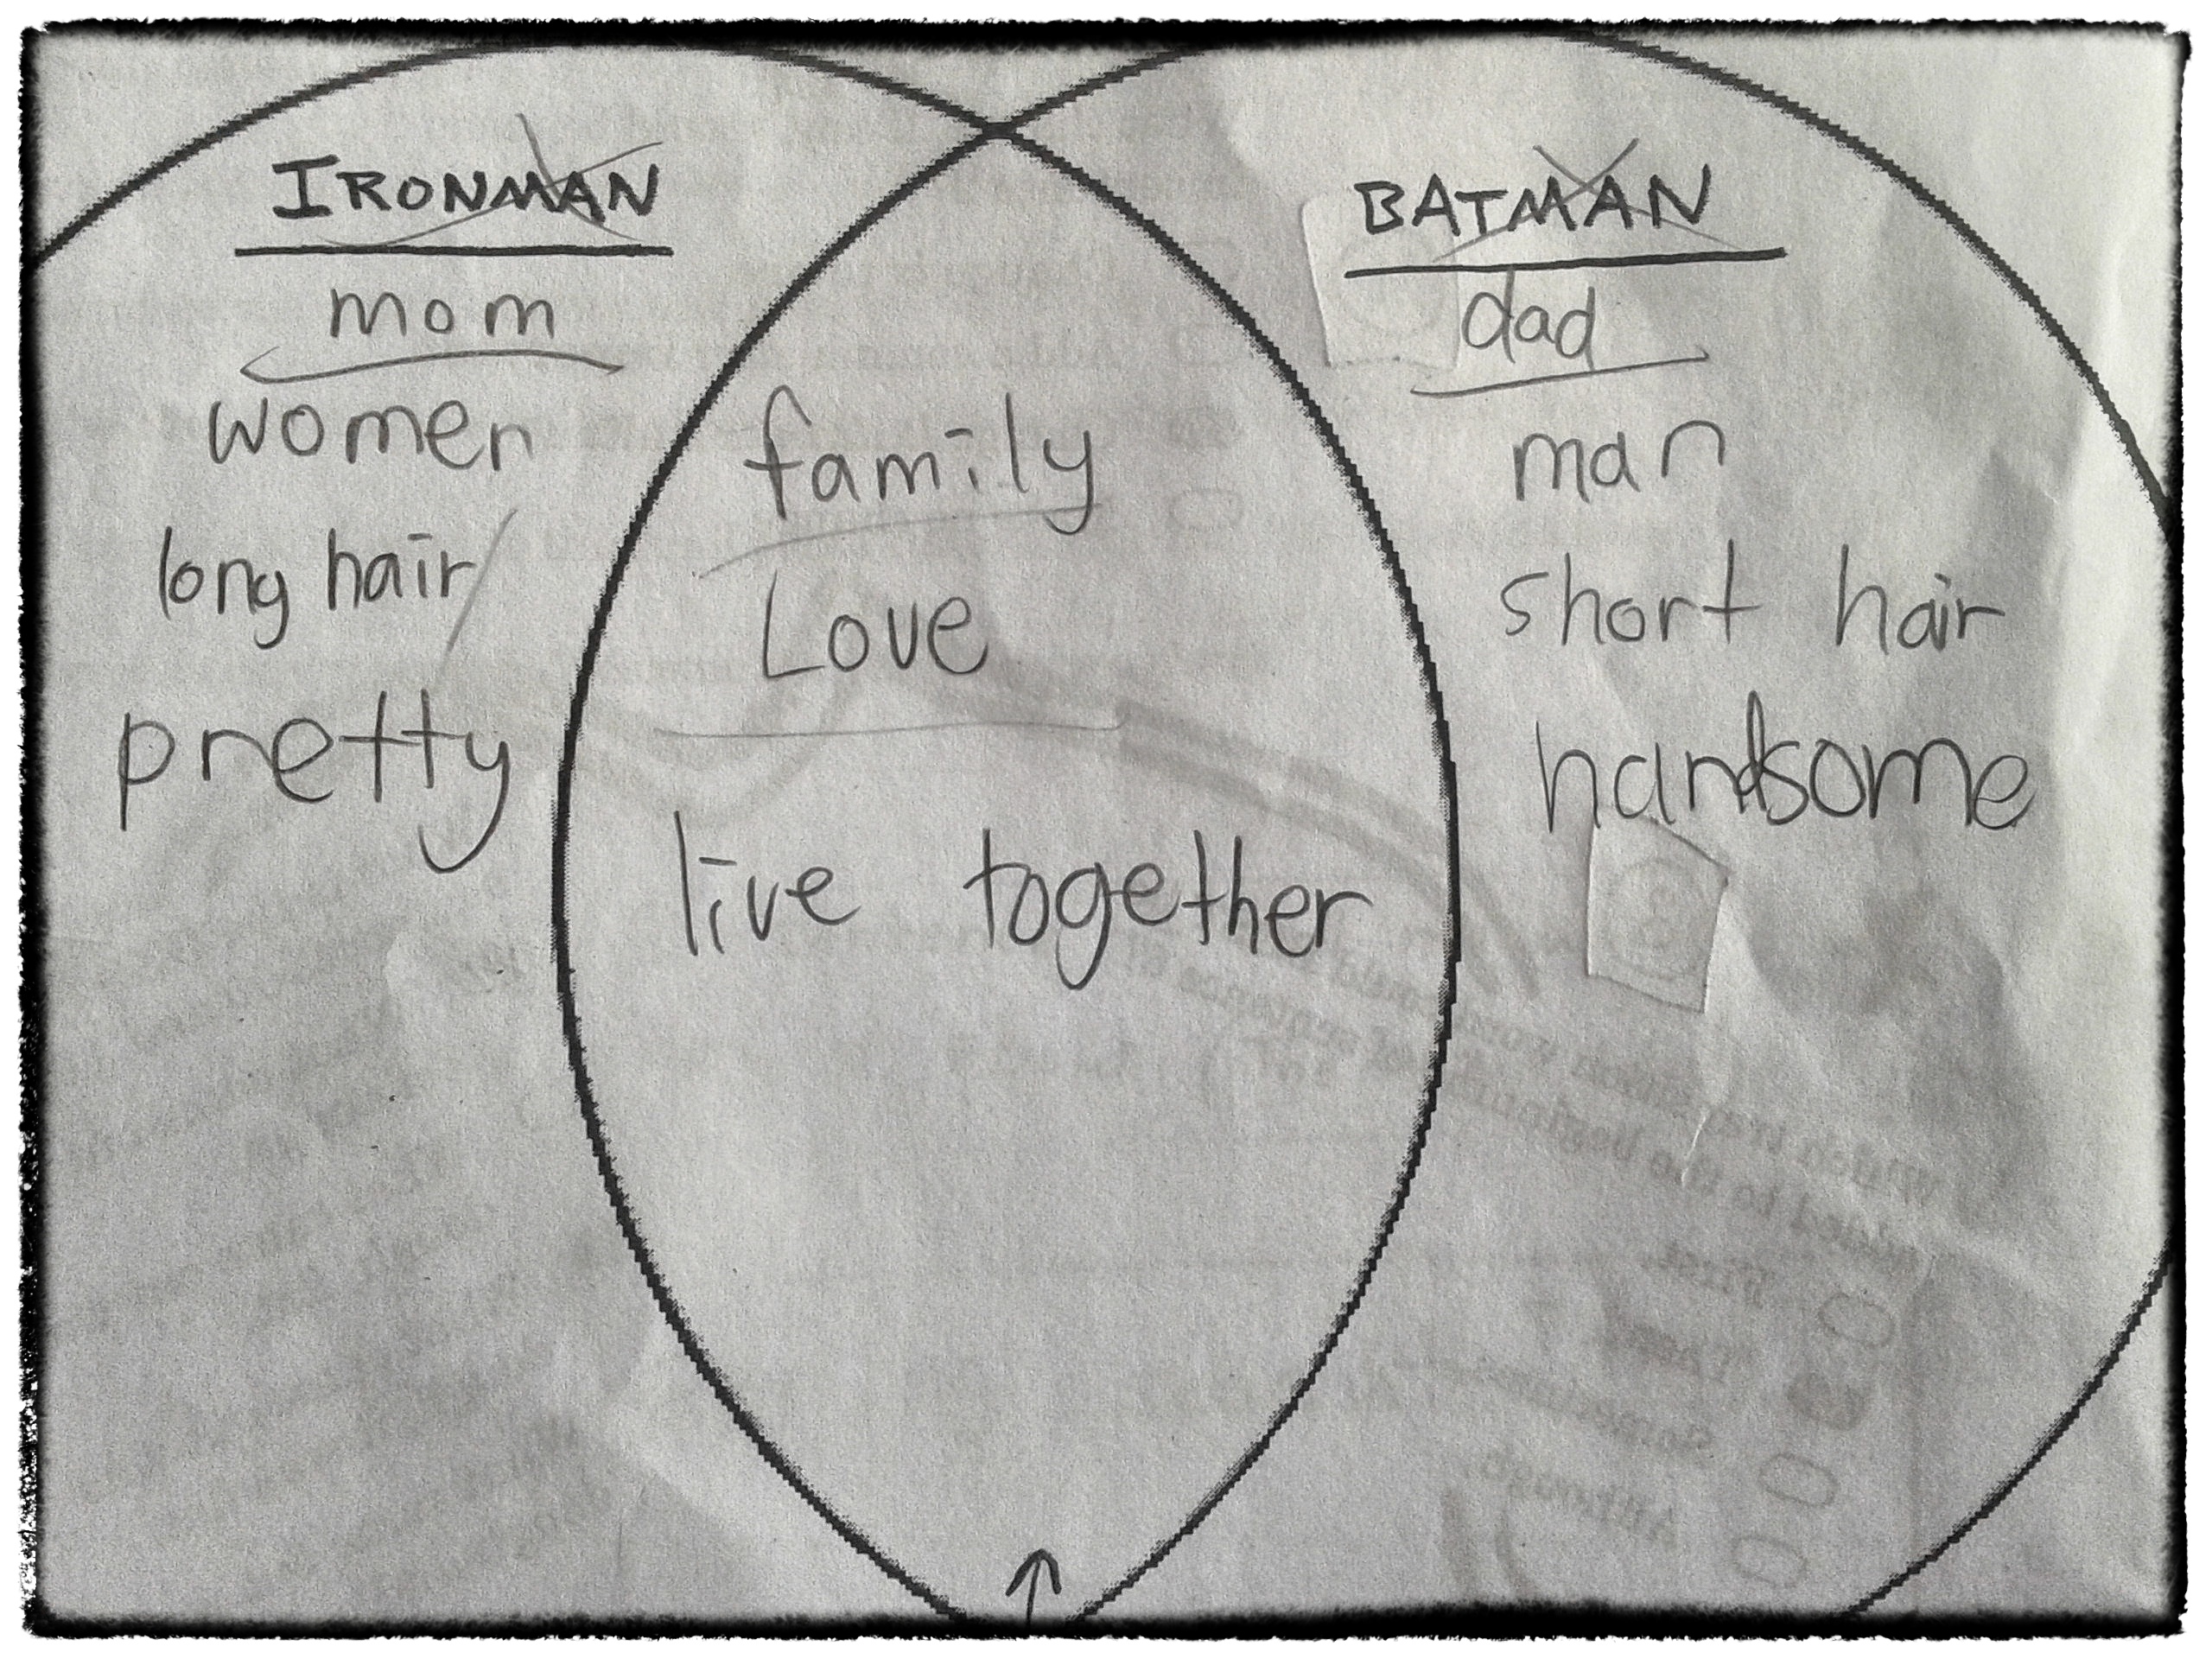 IRONMAN
mom
women
long hair
pretty
family
Love
live together
BATMAN
dad
man
short hair
handsome